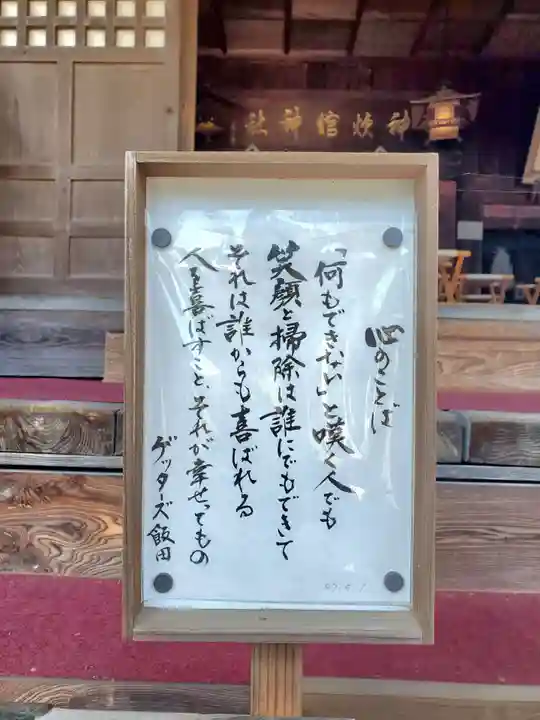 神炊信神社
心のことば
「何もできない」と嘆く人でも
笑顔と掃除は誰にでもできて
それは誰からも喜ばれる
人を喜ばすこと、それが幸せってもの
ゲッターズ飯田